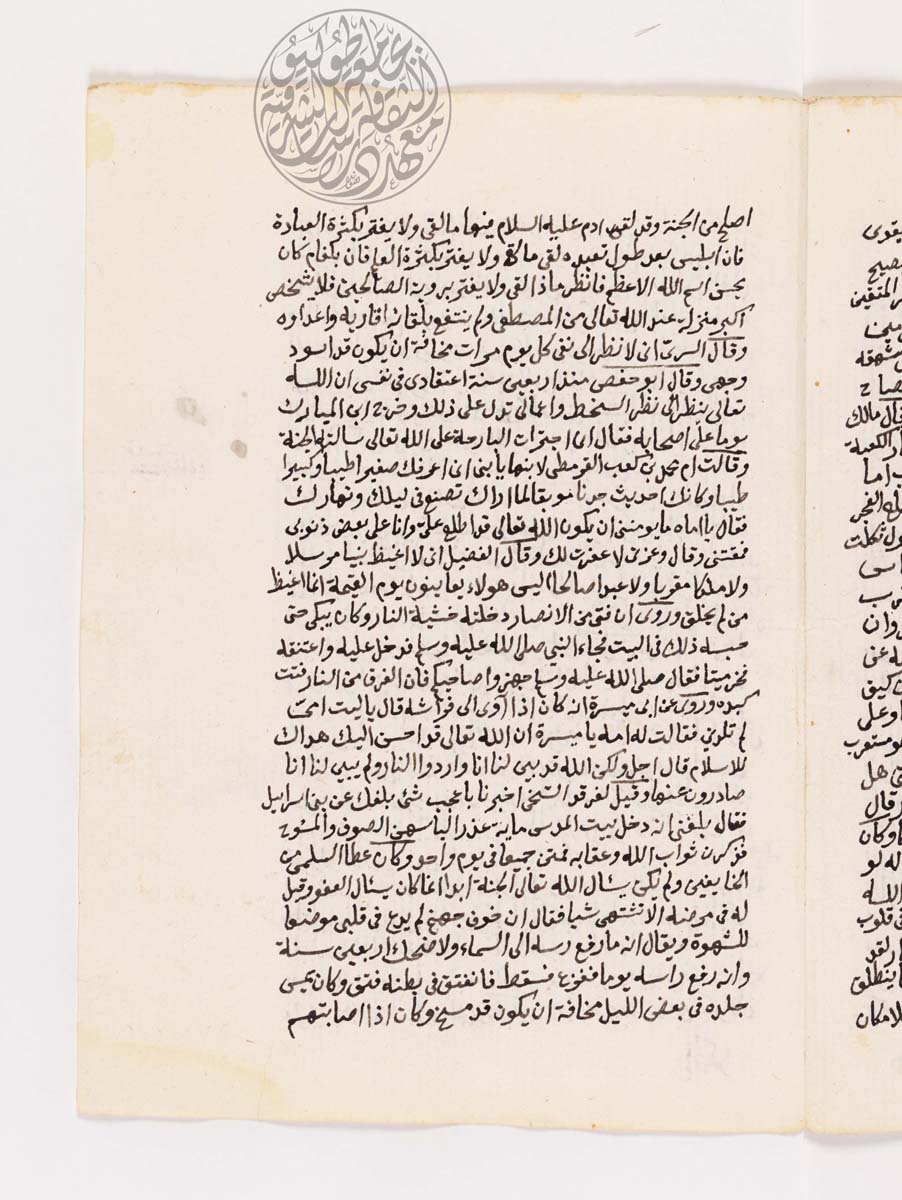 اصلح من الجنة وقد لقى ادم عليه السلام فيها ما لقى ولا يغتر بكثرة العبادة
فان ابليس بعد طول تعبده لقى ما لقى ولا يغتر بكثرة العلم فان بلعام كان
يحسن اسم الله الاعظم فانظر ماذا لقى ولا يغتر بروية الصالحين فلا شخص
اكبر منزلة عند الله تعالى من المصطفى ولم ينتفع بلقائه اقاربه واعداوه
وقال السرى انى لانظر الى نفى كل يوم مرات مخافة ان يكون قد اسود
وجهى وقال ابو حفص منذ اربعين سنة اعتقادى فى نفسى ان الله
تعالى ينظر الى نظر السخط واعمالى تدل على ذلك وخرج ابن المبارك
يوما على اصحابه فقال انى اجترات البارحة على الله تعالى سالته الجنة
وقالت ام محمد بن كعب القرظى لابنها يا بنى انى اعرفك صغيرا طيبا وكبيرا
طيبا وكانك احدثت حدثا موبقا لما اراك تصنع فى ليلك ونهارك
فقال يا اماه ما يومننى ان يكون الله تعالى قد اطلع على وانا على بعض ذنوبى
فمقتنى وقال وعزتى لا غفرت لك وقال الفضيل انى لا اغبط نبيا مرسلا
ولا ملكا مقربا ولا عبدا صالحا اليس هولاء يعاينون يوم القيمة انما اغبط
من لم يخلق وروى ان فتى من الانصار دخلته خشية النار وكان يبكى حتى
حبسه ذلك فى البيت فجاء النبي صلى الله عليه وسلم فدخل عليه واعتنقه
فخر ميتا فقال صلى الله عليه وسلم جهزوا صاحبكم فان الفرق من النار فتت
كبده وروى عن ابى ميسرة انه كان اذا اوى الى فراشه قال يا ليت امى
لم تلدنى فقالت له امه يا ميسرة ان الله تعالى قد احسن اليك هداك
للاسلام قال اجل ولكن الله قد بين لنا انا واردوا النار ولم يبين لنا انا
صادرون عنها وقيل لفرقد السبخى اخبرنا باعجب شئ بلغك عن بنى اسرايل
فقال بلغنى انه دخل بيت المقدس ماية عذرا لباسهن الصوف والمسوح
فذكرن ثواب الله وعقابه فمتن جميعا فى يوم واحد وكان عطا السلمى من
الخايفين ولم يكن يسئال الله تعالى الجنة ابدا انما كان يسئال العفو وقيل
له فى مرضه الا تشتهى شيا فقال ان خوف جهنم لم يدع فى قلبى موضعا
للشهوة ويقال انه ما رفع رسه الى السماء ولا ضحك اربعين سنة
وانه رفع راسه يوما ففزع فسقط فانفتق فى بطنه فتق وكان يمس
جلده فى بعض الليل مخافة ان يكون قد مسخ وكان اذا اصابتهم